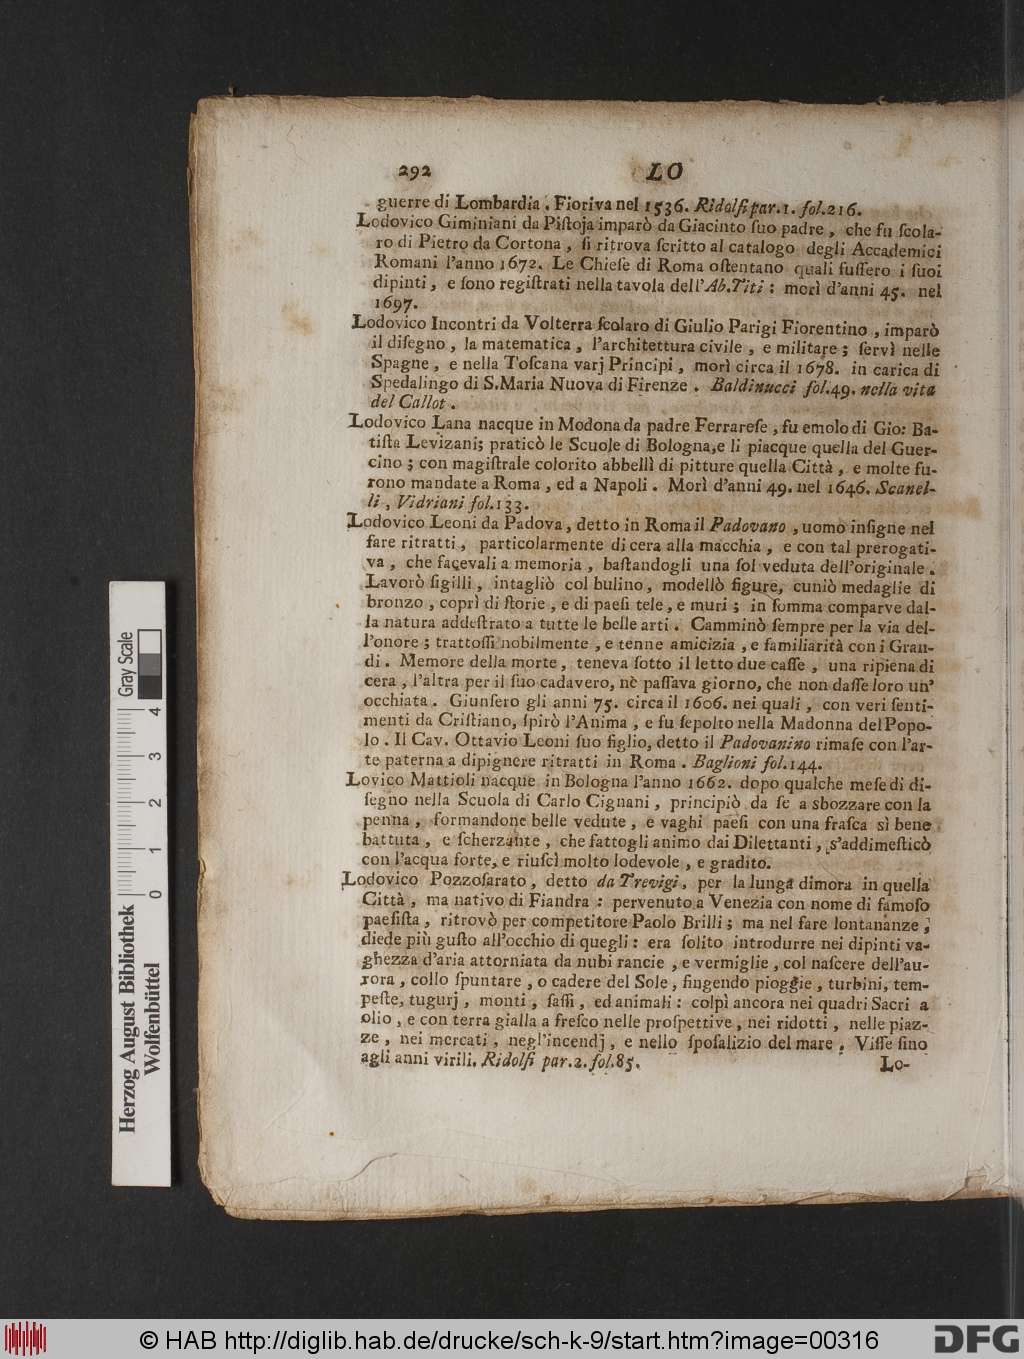 292 LO
guerre di Lombardia. Fioriva nel 1536. Ridolfi par.1. fol.216.
Lodovico Giminiani da Piſtoja imparò da Giacinto ſuo padre, che fu ſcola-
ro di Pietro da Cortona, ſi ritrova ſcritto al catalogo degli Accademici
Romani l'anno 1672. Le Chieſe di Roma oſtentano quali fuſſero i ſuoi
dipinti, e ſono regiſtrati nella tavola dell'Ab.Titi: morì d'anni 45. nel
1697.
Lodovico Incontri da Volterra ſcolaro di Giulio Parigi Fiorentino, imparò
il diſegno, la matematica, l'architettura civile, e militare; ſervì nelle
Spagne, e nella Toſcana varj Principi, morì circa il 1678. in carica di
Spedalingo di S.Maria Nuova di Firenze. Baldinucci fol.49. nella vita
del Callot.
Lodovico Lana nacque in Modona da padre Ferrareſe, fu emolo di Gio: Ba-
tiſta Levizani; praticò le Scuole di Bologna,e li piacque quella del Guer-
cino; con magiſtrale colorito abbellì di pitture quella Città, e molte fu-
rono mandate a Roma, ed a Napoli. Morì d'anni 49. nel 1646. Scanel-
li, Vidriani fol.133.
Lodovico Leoni da Padova, detto in Roma il Padovano, uomo inſigne nel
fare ritratti, particolarmente di cera alla macchia, e con tal prerogati-
va, che facevali a memoria, baſtandogli una ſol veduta dell'originale.
Lavorò ſigilli, intagliò col bulino, modellò figure, cuniò medaglie di
bronzo, coprì di ſtorie, e di paeſi tele, e muri; in ſomma comparve dal-
la natura addeſtrato a tutte le belle arti. Camminò ſempre per la via del-
l'onore; trattoſſi nobilmente, e tenne amicizia, e familiarità con i Gran-
di. Memore della morte, teneva ſotto il letto due caſſe, una ripiena di
cera, l'altra per il ſuo cadavero, nè paſſava giorno, che non daſſe loro un'
occhiata. Giunſero gli anni 75. circa il 1606. nei quali, con veri ſenti-
menti da Criſtiano, ſpirò l'Anima, e fu ſepolto nella Madonna del Popo-
lo. Il Cav. Ottavio Leoni ſuo figlio, detto il Padovanino rimaſe con l'ar-
te paterna a dipignere ritratti in Roma. Baglioni fol.144.
Lovico Mattioli nacque in Bologna l'anno 1662. dopo qualche meſe di di-
ſegno nella Scuola di Carlo Cignani, principiò da ſe a sbozzare con la
penna, formandone belle vedute, e vaghi paeſi con una fraſca sì bene
battuta, e ſcherzante, che fattogli animo dai Dilettanti, s'addimeſticò
con l'acqua forte, e riuſcì molto lodevole, e gradito.
Lodovico Pozzoſarato, detto da Trevigi, per la lunga dimora in quella
Città, ma nativo di Fiandra: pervenuto a Venezia con nome di famoſo
paeſiſta, ritrovò per competitore Paolo Brilli; ma nel fare lontananze,
diede più guſto all'occhio di quegli: era ſolito introdurre nei dipinti va-
ghezza d'aria attorniata da nubi rancie, e vermiglie, col naſcere dell'au-
rora, collo ſpuntare, o cadere del Sole, fingendo pioggie, turbini, tem-
peſte, tugurj, monti, ſaſſi, ed animali: colpì ancora nei quadri Sacri a
olio, e con terra gialla a freſco nelle proſpettive, nei ridotti, nelle piaz-
ze, nei mercati, negl'incendj, e nello ſpoſalizio del mare. Viſſe ſino
agli anni virili. Ridolfi par.2. fol.85.
Lo-
Gray Scale
0 1 2 3 4
Herzog August Bibliothek
Wolfenbüttel
© HAB http://diglib.hab.de/drucke/sch-k-9/start.htm?image=00316
DFG